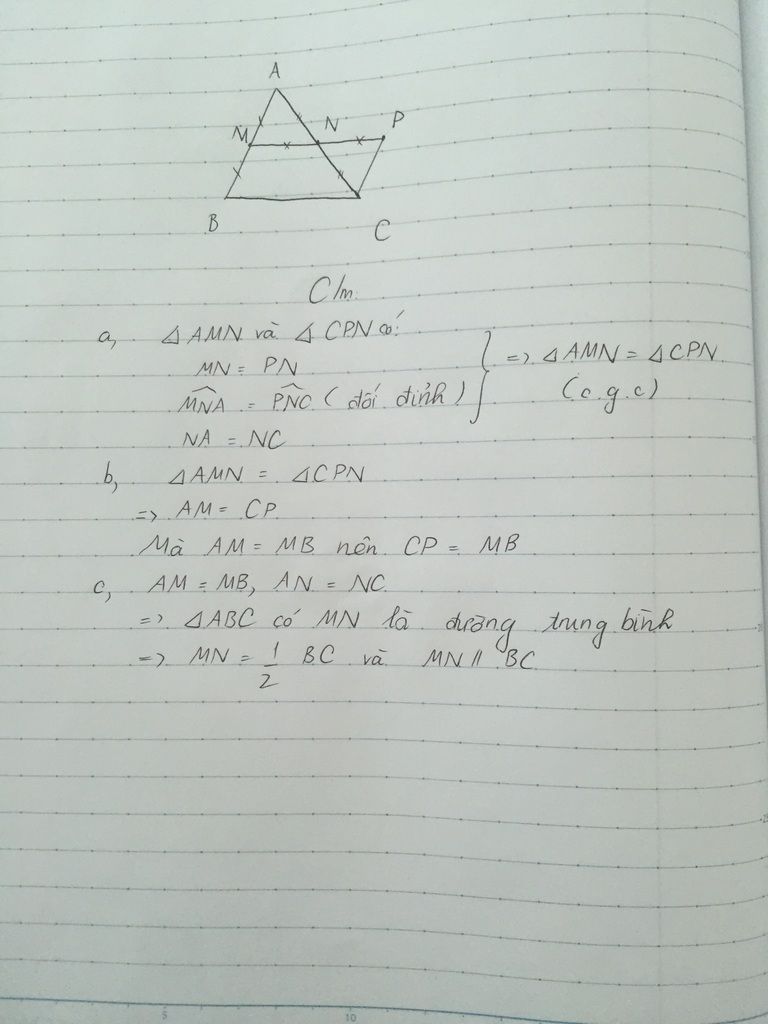 A
M
N
P
B
C
C/m.
a, △AMN và △CPN có:
MN = PN
∠MNA = ∠PNC (đối đỉnh)
=> △AMN = △CPN
(c.g.c)
NA = NC
b, △AMN = △CPN
=> AM = CP
Mà AM = MB nên CP = MB
c, AM = MB, AN = NC
=> △ABC có MN là đường trung bình
=> MN = 1/2 BC và MN // BC
5
10